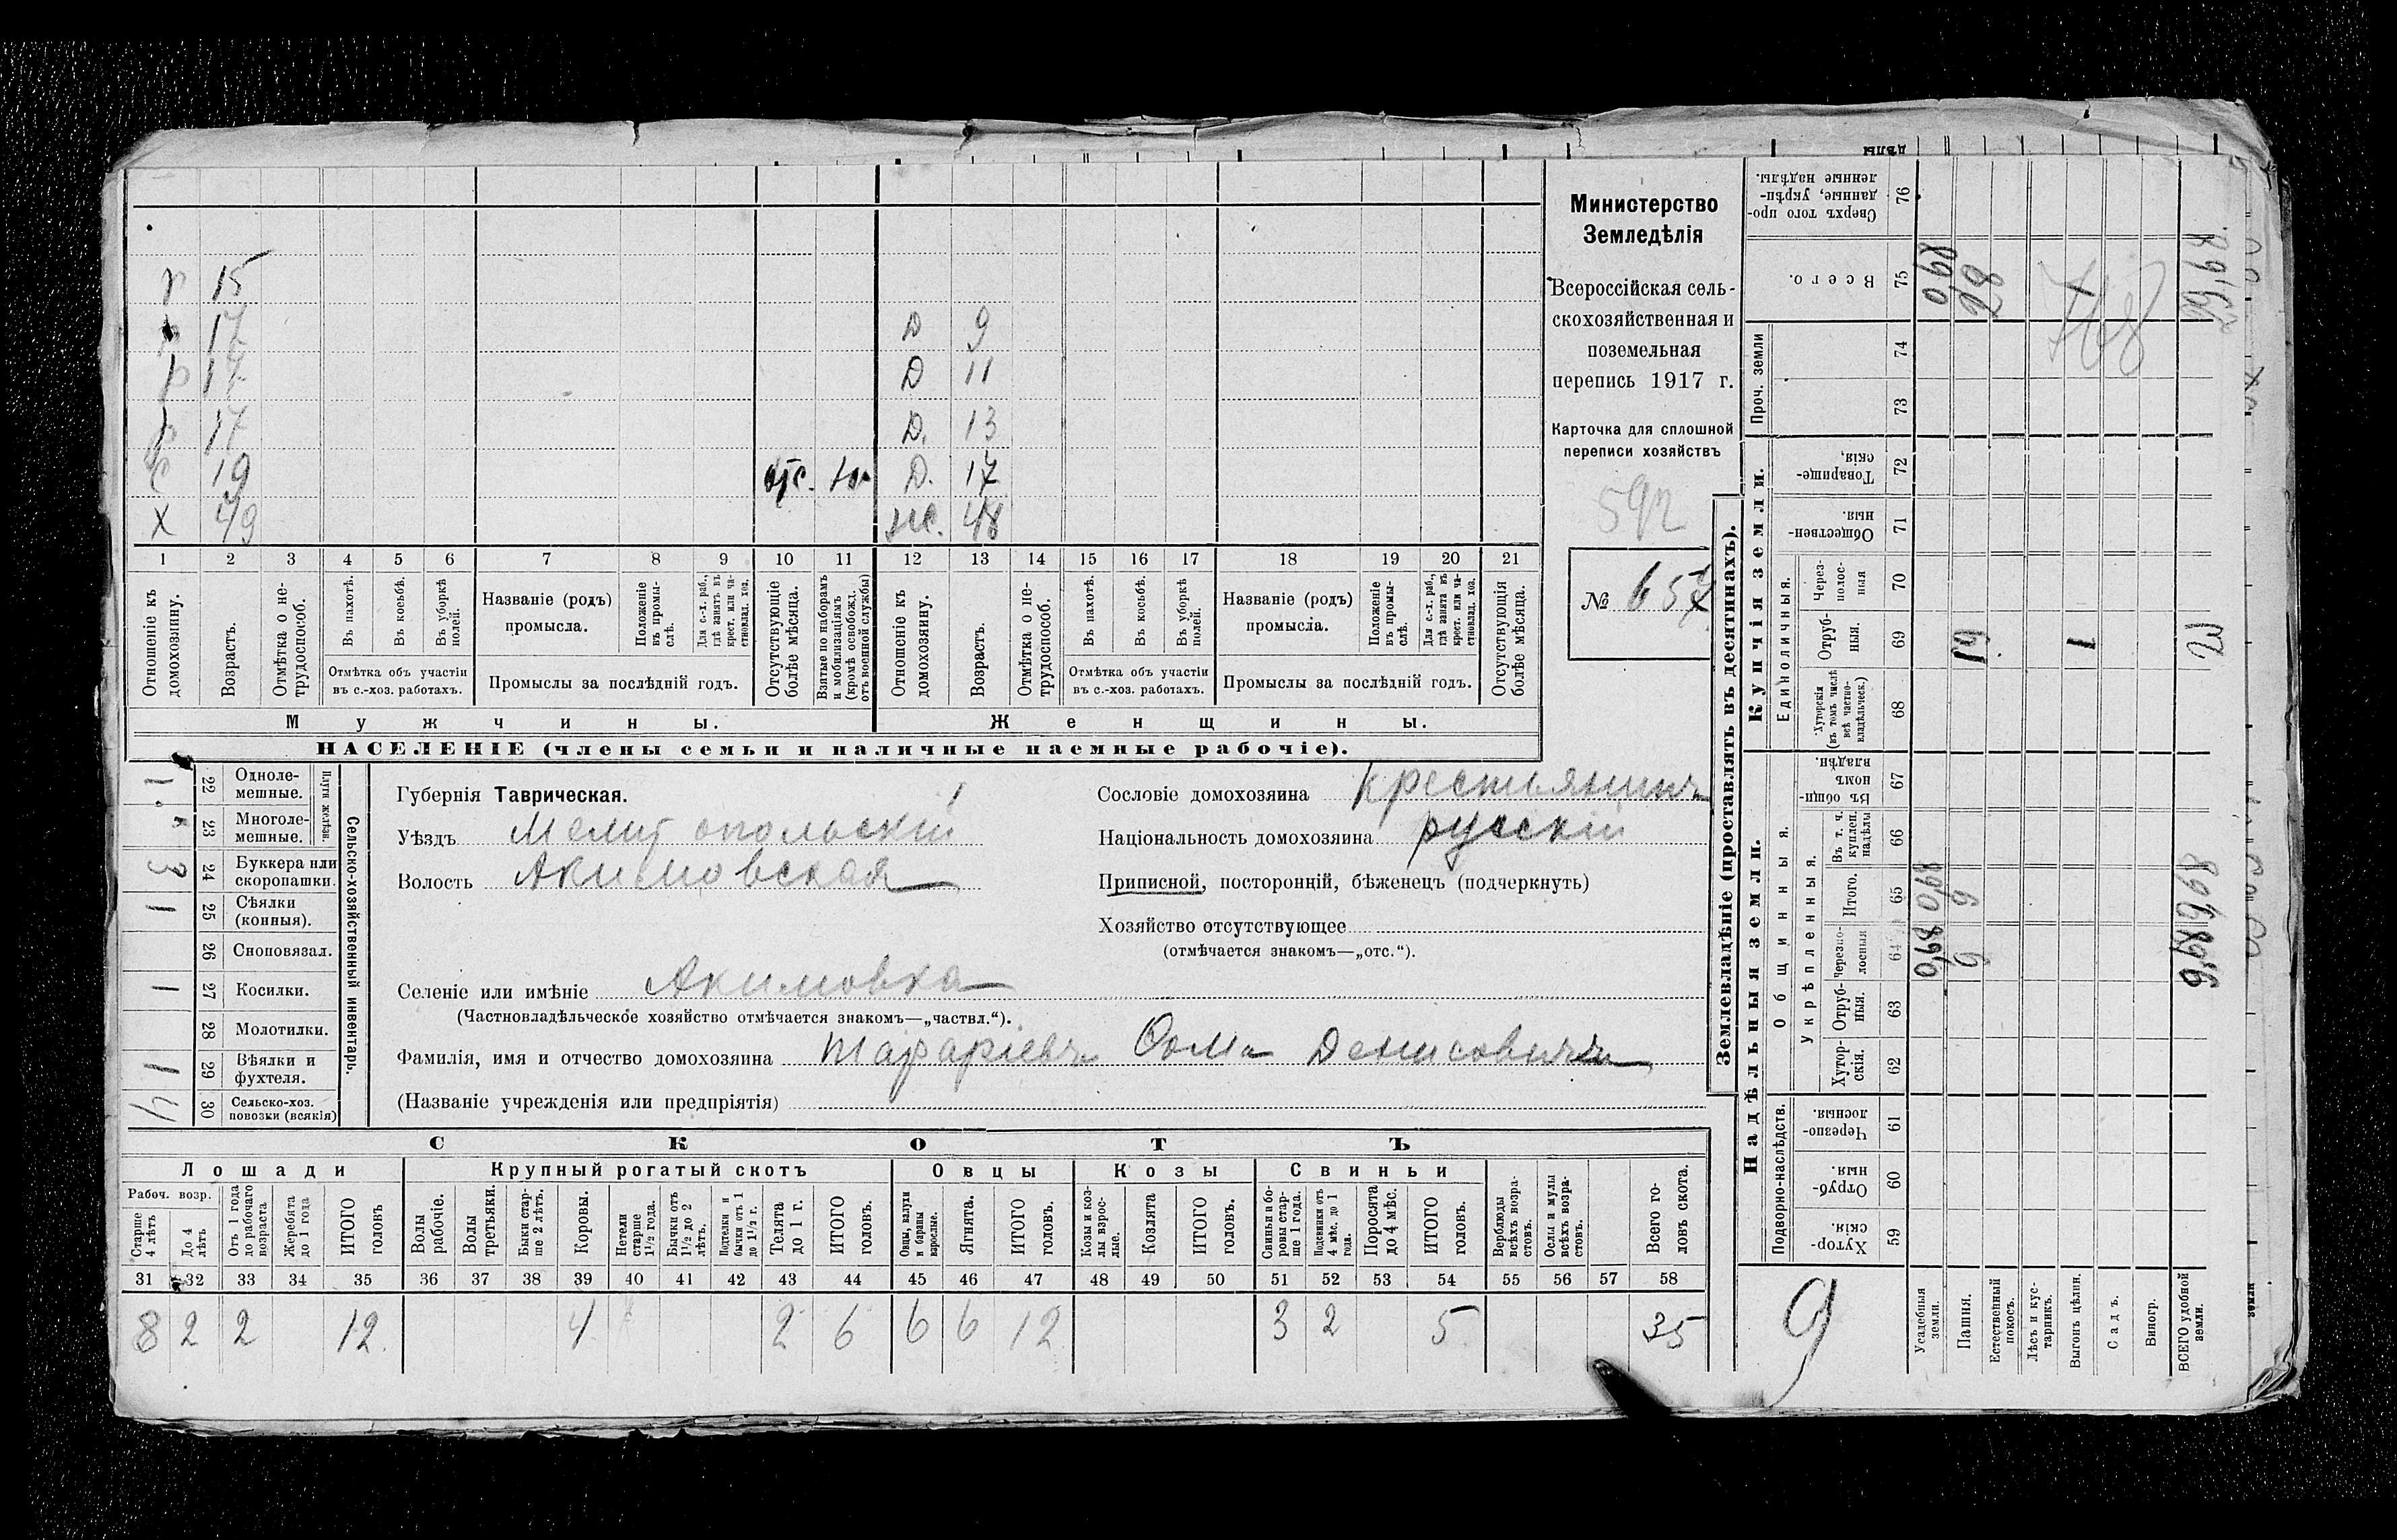 Министерство
Земледѣлія
Всероссійская сель-
скохозяйственная и
поземельная
перепись 1917 г.
Карточка для сплошной
переписи хозяйствъ
592
№ 657
р 15
17 Д 9
р 17 Д 11
р 17 Д. 13
с 19 отс. Д. 17
х 49 ж. 48
1 2 3 4 5 6 7 8 9 10 11 12 13 14 15 16 17 18 19 20 21
Отношеніе къ домохозяину.
Возрастъ.
Отмѣтка о не-трудоспособ.
Въ пахотѣ.
Въ косьбѣ.
Въ уборкѣ полей.
Отмѣтка объ участіи
въ с.-хоз. работахъ.
Названіе (родъ)
промысла.
Положеніе въ промы-слѣ.
Для с.-х. раб., гдѣ занятъ въ крест. или ча-стновлад. хоз.
Промыслы за послѣдній годъ.
Отсутствующіе болѣе мѣсяца.
Взятые по наборамъ и мобилизаціямъ (кромѣ освобожд. отъ военной службы)
Отношеніе къ домохозяину.
Возрастъ.
Отмѣтка о не-трудоспособ.
Въ пахотѣ.
Въ косьбѣ.
Въ уборкѣ полей.
Отмѣтка объ участіи
въ с.-хоз. работахъ.
Названіе (родъ)
промысла.
Положеніе въ промы-слѣ.
Для с.-х. раб., гдѣ занята въ крест. или ча-стновлад. хоз.
Промыслы за послѣдній годъ.
Отсутствующія болѣе мѣсяца.
Мужчины. Женщины.
НАСЕЛЕНІЕ (члены семьи и наличные наемные рабочіе).
Сельско-хозяйственный инвентарь.
1 22 Одноле-мешные.
23 Многоле-мешные.
3 24 Буккера или скоропашки.
1 25 Сѣялки (конныя).
26 Сноповязал.
1 27 Косилки.
28 Молотилки.
1 29 Вѣялки и фухтеля.
4 30 Сельско-хоз. повозки (всякія)
Губернія Таврическая.
Уѣздъ Мелитопольскій
Волость Акимовская
Селеніе или имѣніе Акимовка
(Частновладѣльческое хозяйство отмѣчается знакомъ—„частвл.“).
Фамилія, имя и отчество домохозяина Ѳома Денисовичъ
(Названіе учрежденія или предпріятія)
Сословіе домохозяина крестьянинъ
Національность домохозяина русскій
Приписной, посторонній, бѣженецъ (подчеркнуть)
Хозяйство отсутствующее
(отмѣчается знакомъ—„отс.“).
СКОТЪ
Лошади Крупный рогатый скотъ Овцы Козы Свиньи
Рабоч. возр.
Старше 4 лѣтъ
До 4 лѣтъ
Отъ 1 года до рабочаго возраста
Жеребята до 1 года
ИТОГО головъ
Волы рабочіе.
Волы третьяки.
Быки стар-ше 2 лѣтъ.
Коровы.
Нетели старше 1½ года.
Бычки отъ 1½ до 2 лѣтъ.
Подтелки и бычки отъ 1 до 1½ г.
Телята до 1 г.
ИТОГО головъ.
Овцы, валухи и бараны взрослые.
Ягнята.
ИТОГО головъ.
Козы и коз-лы взрос-лые.
Козлята
ИТОГО головъ.
Свиньи и бо-ровы стар-ше 1 года.
Подсвинки отъ 4 мѣс. до 1 года.
Поросята до 4 мѣс.
ИТОГО головъ.
Верблюды всѣхъ возра-стовъ.
Ослы и мулы всѣхъ возра-стовъ.
Всего го-ловъ скота.
31 32 33 34 35 36 37 38 39 40 41 42 43 44 45 46 47 48 49 50 51 52 53 54 55 56 57 58
8 2 2 12 4 2 6 6 6 12 3 2 5 35
Землевладѣніе (проставлять въ десятинахъ).
Купчія земли.
Надѣльныя земли.
Сверхъ того про-данные, укрѣп-ленные надѣлы. 76
Всего. 75
Проч. земли 74 73
Товарище-скія, 72
Обществен-ныя. 71
Единоличныя.
Через-полос-ныя 70
Отруб-ныя. 69 19 1
Хуторскія (въ томъ числѣ всѣ частно-владѣльческ.) 68
Общинныя.
Въ общи-номъ владѣн. 67
Укрѣпленныя.
Въ т. ч. куплен. надѣлы 66
Итого. 65
Черезпо-лосныя 64
Отруб-ныя. 63
Хутор-скія. 62
Подворно-наслѣдств.
Черезпо-лосныя. 61
Отруб-ныя. 60
Хутор-скія. 59
9
Усадебныя земли.
Пашня.
Естественный покосъ.
Лѣсъ и кус-тарникъ.
Выгонъ цѣлин.
Садъ.
Виногр.
ВСЕГО удобной земли.